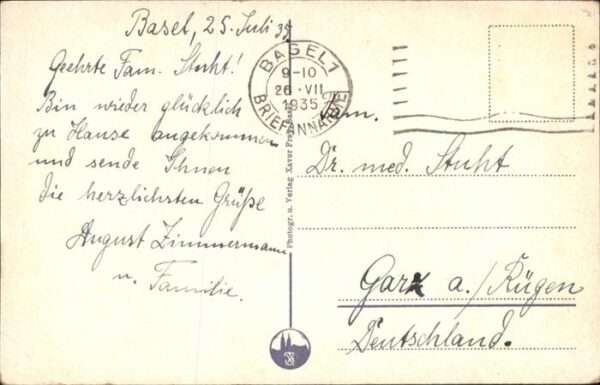 Basel, 25. Juli 35
Geehrte Fam. Stuht!
Bin wieder glücklich
zu Hause angekommen
und sende Ihnen
die herzlichsten Grüße
August Zimmermann
u. Familie.
BASEL 1
9-10
26·VII
1935
BRIEFANNAHME
Photogr. u. Verlag Xaver
Fam.
Dr. med. Stuht
Garz a./Rügen
Deutschland.